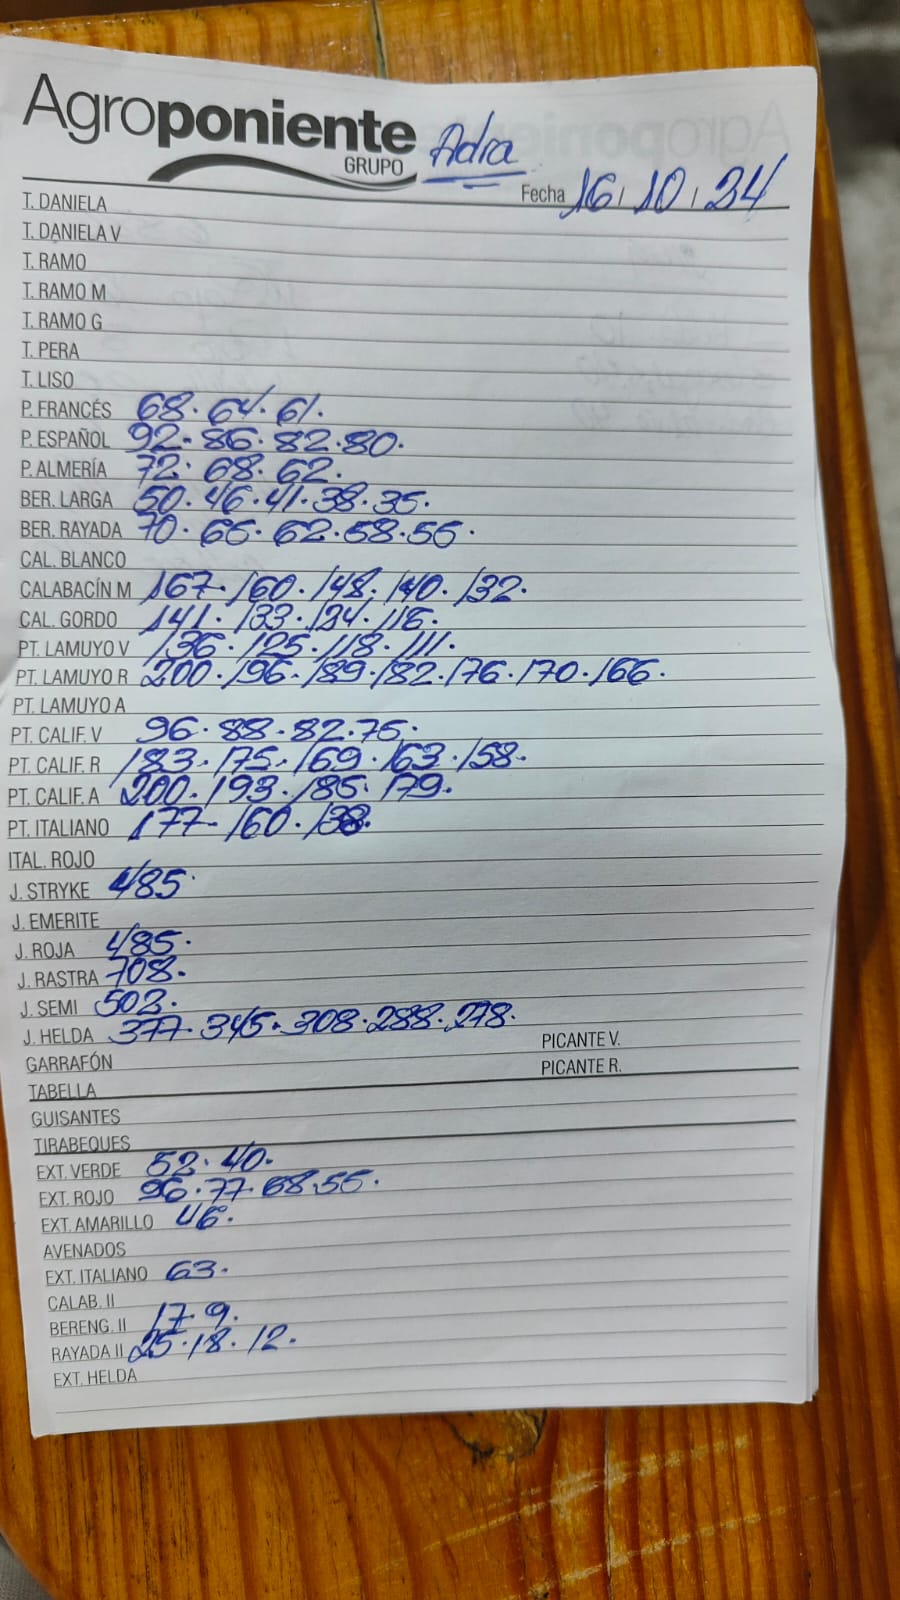 Agroponiente
GRUPO
Adra
Fecha 16 / 10 / 24
T. DANIELA
T. DANIELA V
T. RAMO
T. RAMO M
T. RAMO G
T. PERA
T. LISO
P. FRANCÉS 68. 64. 61.
P. ESPAÑOL 92. 86. 82. 80.
P. ALMERÍA 72. 68. 62.
BER. LARGA 50. 46. 41. 38. 35.
BER. RAYADA 70. 66. 62. 58. 56.
CAL. BLANCO
CALABACÍN M 167. 160. 148. 140. 132.
CAL. GORDO 141. 133. 124. 116.
PT. LAMUYO V 136. 125. 118. 111.
PT. LAMUYO R 200. 196. 189. 182. 176. 170. 166.
PT. LAMUYO A
PT. CALIF. V 96. 88. 82. 76.
PT. CALIF. R 183. 175. 169. 163. 158.
PT. CALIF. A 200. 193. 185. 179.
PT. ITALIANO 177. 160. 138.
ITAL. ROJO
J. STRYKE 485.
J. EMERITE
J. ROJA 485.
J. RASTRA 708.
J. SEMI 502.
J. HELDA 377. 345. 308. 288. 278.
PICANTE V.
GARRAFÓN
PICANTE R.
TABELLA
GUISANTES
TIRABEQUES
EXT. VERDE 52. 40.
EXT. ROJO 96. 77. 68. 55.
EXT. AMARILLO 46.
AVENADOS
EXT. ITALIANO 63.
CALAB. II
BERENG. II 17. 9.
RAYADA II 25. 18. 12.
EXT. HELDA